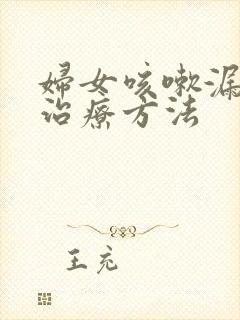 婦女咳嗽漏
治療方法
王充